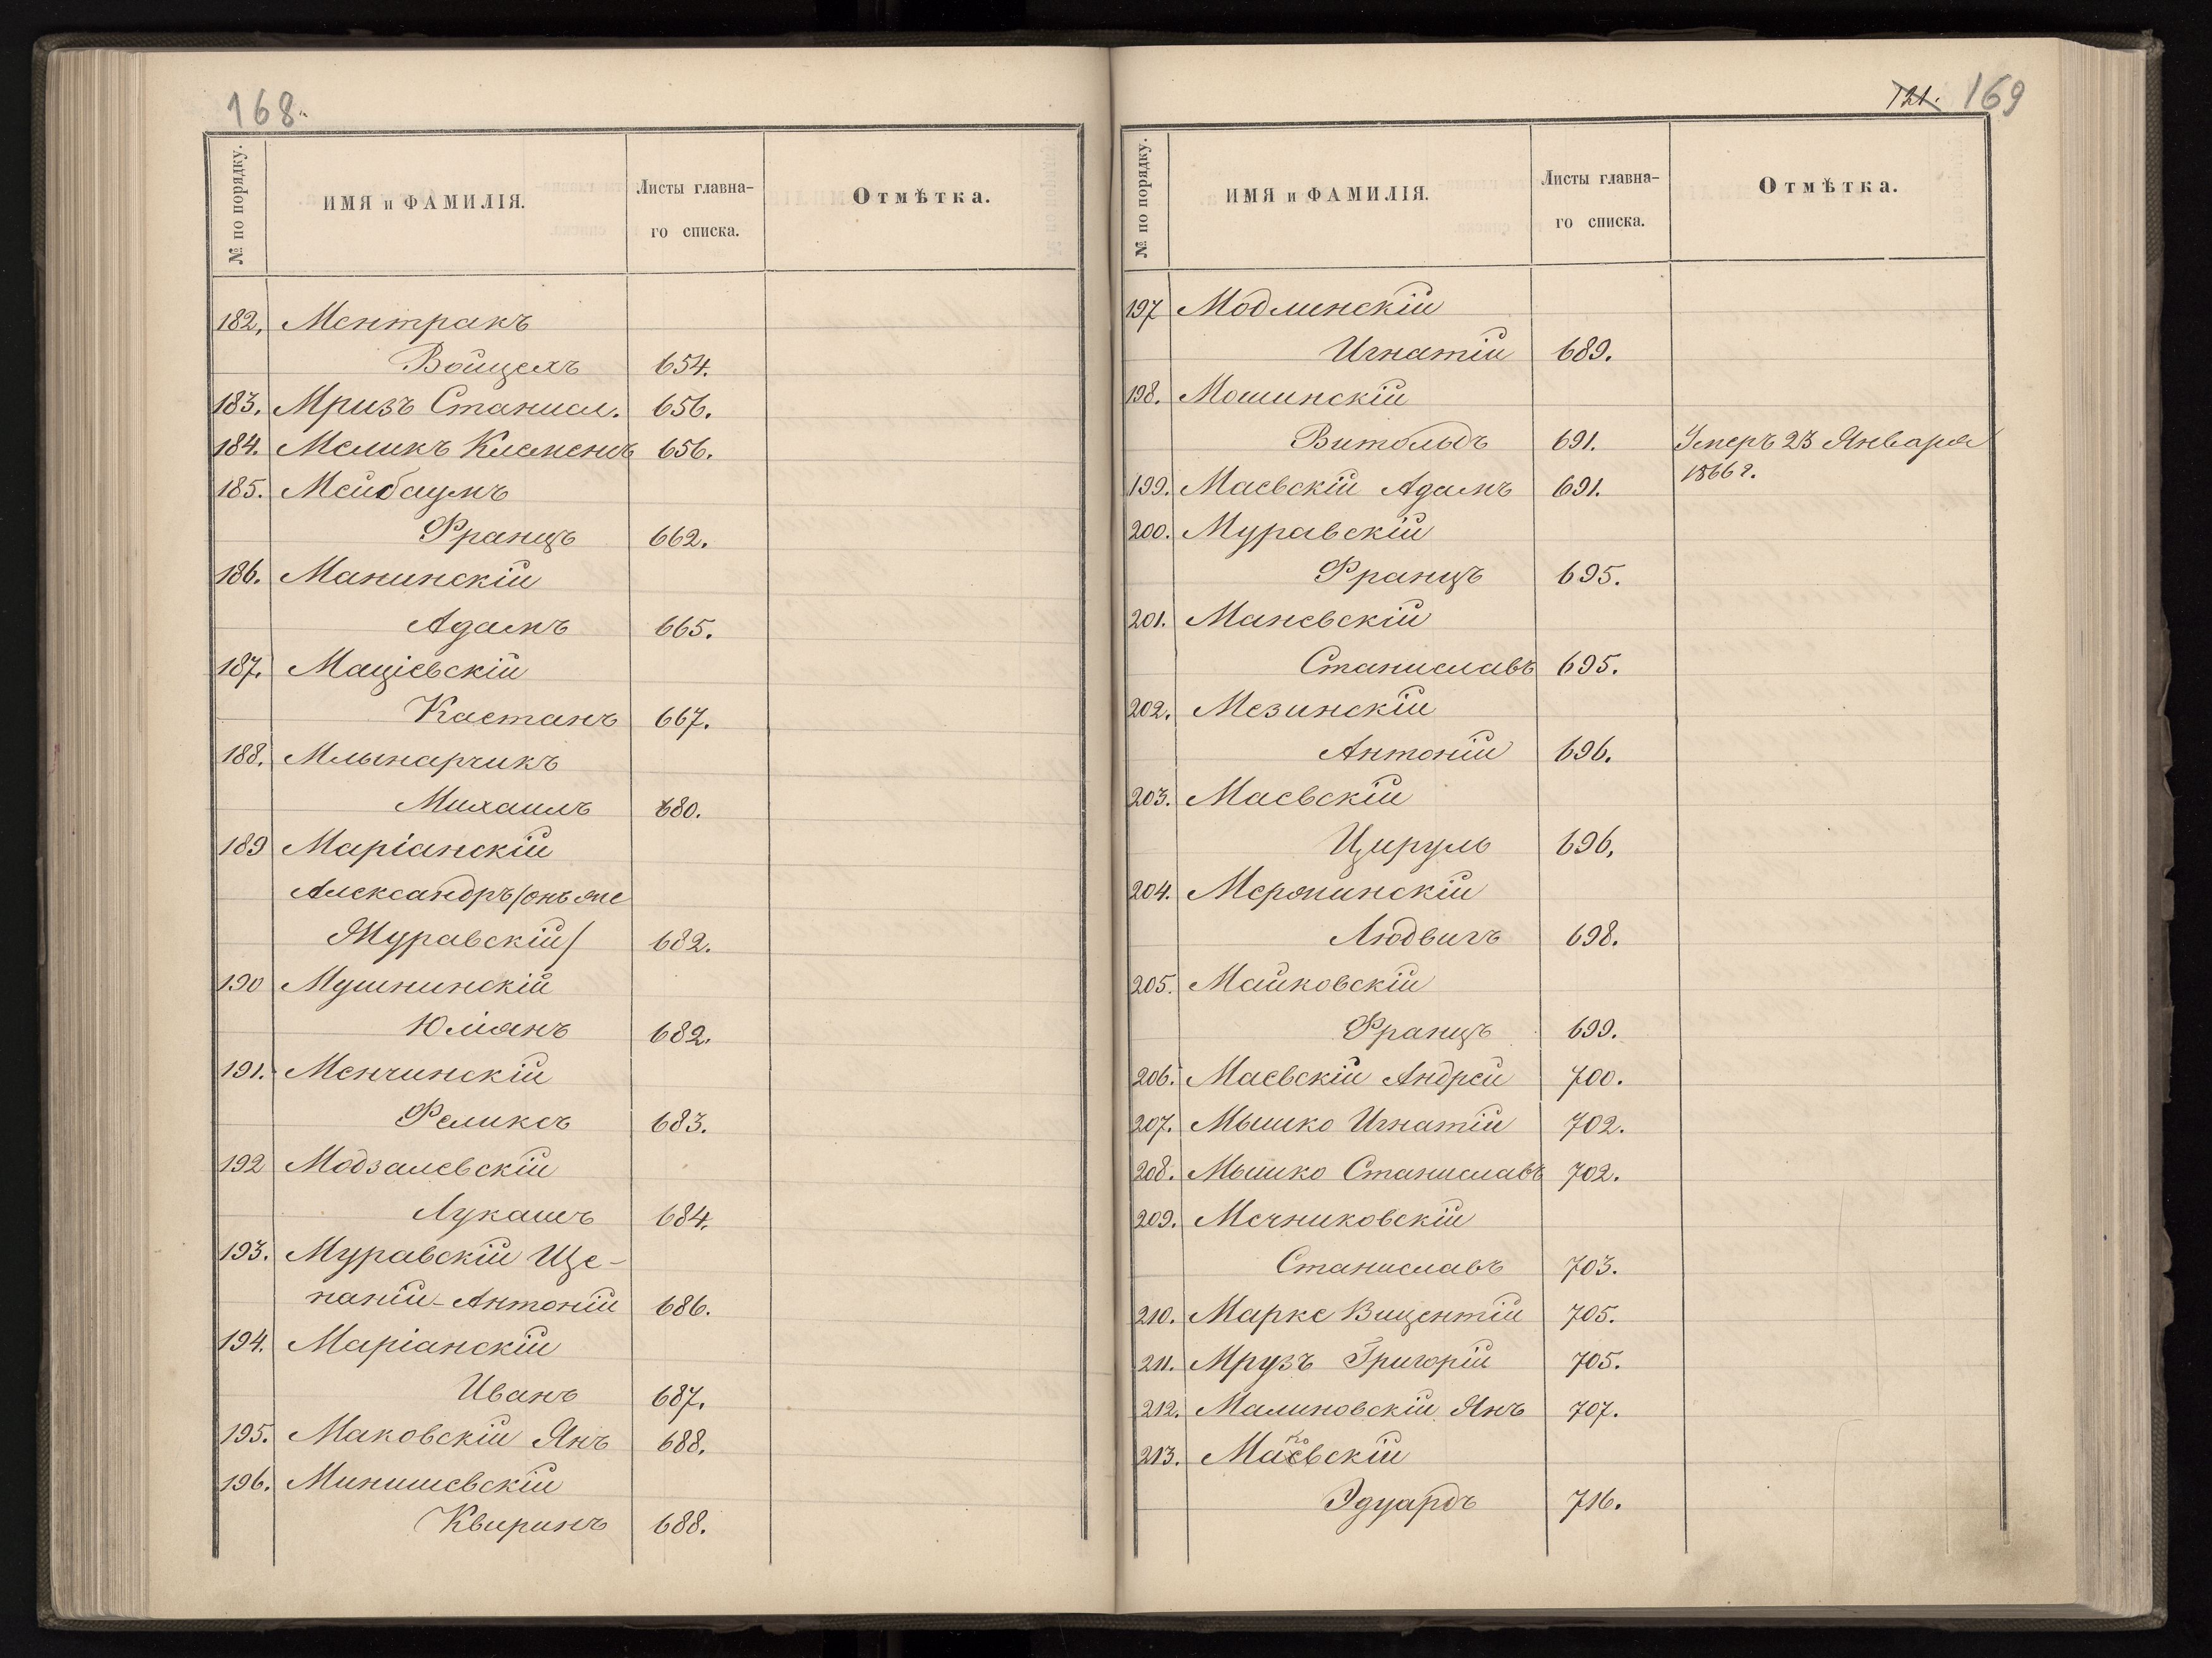 168.
№ по порядку.
ИМЯ и ФАМИЛІЯ.
Листы главна-
го списка.
Отмѣтка.
182, Ментракъ
Войцехъ 654.
183. Мризъ Станисл. 656.
184. Меликъ Клеменсъ 656.
185. Мейбаумъ
Францъ 662.
186. Манинскій
Адамъ 665.
187. Маціевскій
Каетанъ 667.
188. Млынарчикъ
Михаилъ 680.
189 Маріанскій
Александръ /онъ же
Муравскій/ 682.
190 Мушнинскій
Юліянъ 682.
191. Менчинскій
Феликсъ 683.
192 Модзалевскій
Лукашъ 684.
193. Муравскій Ще-
панъй-Антоній 686.
194. Маріанскій
Иванъ 687.
195. Маковскій Янъ 688.
196. Минишевскій
Квиринъ 688.
121. 169
№ по порядку.
ИМЯ и ФАМИЛІЯ.
Листы главна-
го списка.
Отмѣтка.
197 Модлинскій
Игнатій 689.
198. Мошинскій
Витольдъ 691. Умеръ 23 Января
1866 г.
199. Маевскій Адамъ 691.
200. Муравскій
Францъ 695.
201. Маневскій
Станиславъ 695.
202. Мезинскій
Антоній 696.
203. Маевскій
Цируль 696,
204. Мерпинскій
Людвигъ 698.
205. Майковскій
Францъ 699.
206. Маевскій Андрей 700.
207. Мышко Игнатій 702.
208. Мышко Станиславъ 702.
209. Мечниковскій
Станиславъ 703.
210. Марке Вицентій 705.
211. Мрузъ Григорій 705.
212. Малиновскій Янъ 707.
213. Маковскій
Эдуардъ 716.